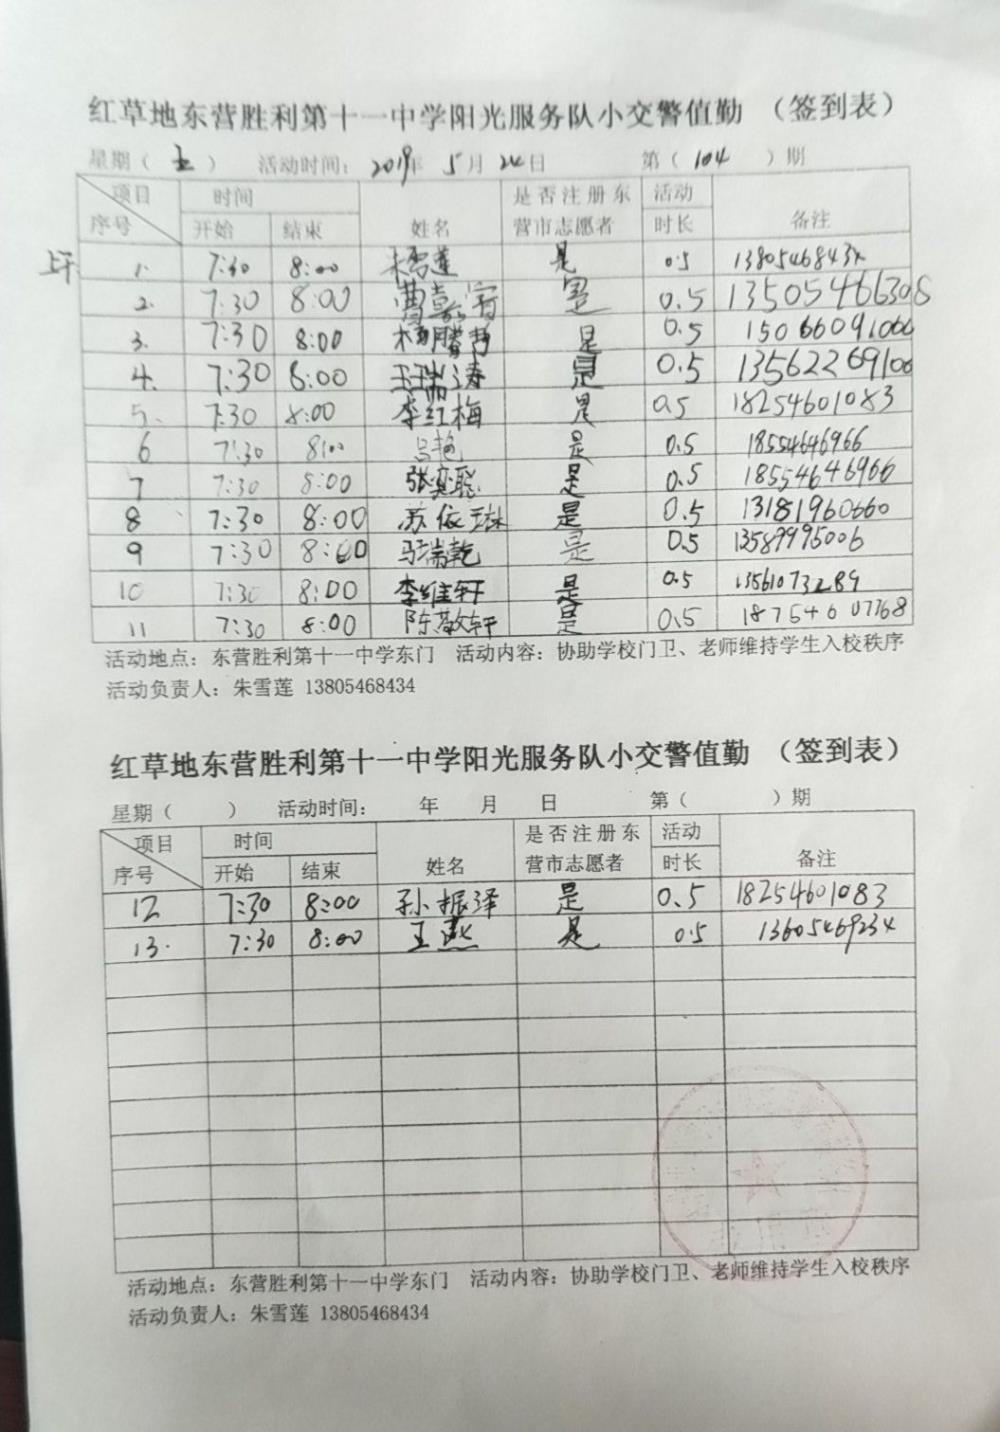 红草地东营胜利第十一中学阳光服务队小交警值勤 （签到表）
星期（ 五 ） 活动时间：2019年 5月 24日 第（ 104 ）期
项目 时间 是否注册东 活动
序号 开始 结束 姓名 营市志愿者 时长 备注
上午 1. 7:30 8:00 朱雪莲 是 0.5
2. 7:30 8:00 是 0.5 13505466308
3. 7:30 8:00 是 0.5 15066091066
4. 7:30 8:00 王瑞涛 是 0.5 13562269106
5. 7:30 8:00 李红梅 是 0.5 18254601083
6 7:30 8:00 吕艳 是 0.5 18554646966
7 7:30 8:00 张奕聪 是 0.5 18554646966
8 7:30 8:00 苏依琳 是 0.5 13181960660
9 7:30 8:00 瑞乾 是 0.5 13589995006
10 7:30 8:00 李维轩 是 0.5 13561073289
11 7:30 8:00 陈敬轩 是 0.5 18754607768
活动地点：东营胜利第十一中学东门 活动内容：协助学校门卫、老师维持学生入校秩序
活动负责人：朱雪莲 13805468434
红草地东营胜利第十一中学阳光服务队小交警值勤 （签到表）
星期（ ） 活动时间： 年 月 日 第（ ）期
项目 时间 是否注册东 活动
序号 开始 结束 姓名 营市志愿者 时长 备注
12 7:30 8:00 孙振泽 是 0.5 18254601083
13. 7:30 8:00 王燕 是 0.5 13605469234
活动地点：东营胜利第十一中学东门 活动内容：协助学校门卫、老师维持学生入校秩序
活动负责人：朱雪莲 13805468434